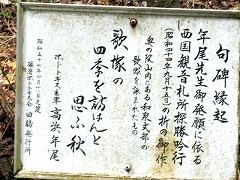 句碑縁起
年尾先生御発願に依る
西国観音札所探勝吟行
(昭和四十四年九月十五日)の折の御作
の院山内にある和泉式部の
歌塚を詠まれたもの
歌塚の
四季を訪はんと
思ふ秋
昭和五十年
ホトトギス主宰 高浜年尾
発行所